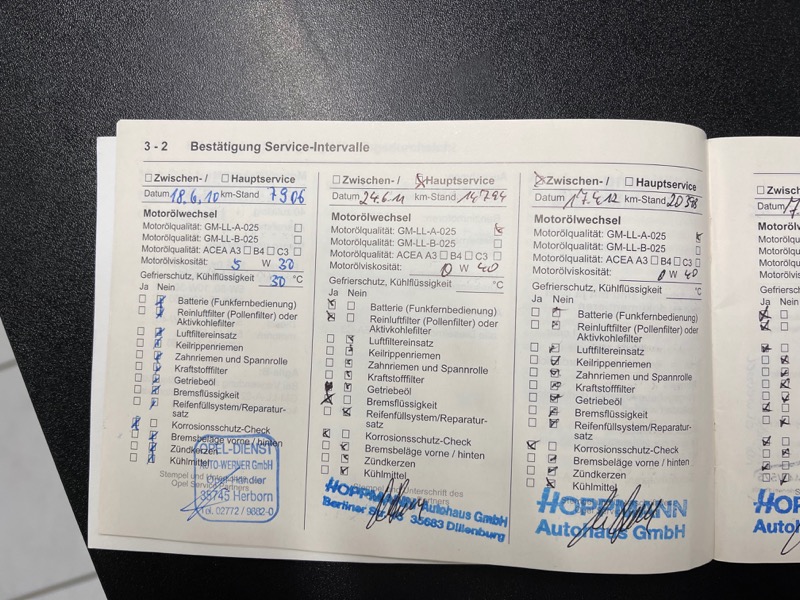 3 - 2 Bestätigung Service-Intervalle
Zwischen-/ Hauptservice
Datum 18.6.10 km-Stand 7906
Motorölwechsel
Motorölqualität: GM-LL-A-025
Motorölqualität: GM-LL-B-025
Motorölqualität: ACEA A3 B4 C3
Motorölviskosität: 5 W 30
Gefrierschutz, Kühlflüssigkeit 30 °C
Ja Nein
Batterie (Funkfernbedienung)
Reinluftfilter (Pollenfilter) oder
Aktivkohlefilter
Luftfiltereinsatz
Keilrippenriemen
Zahnriemen und Spannrolle
Kraftstofffilter
Getriebeöl
Bremsflüssigkeit
Reifenfüllsystem/Reparatur-
satz
Korrosionsschutz-Check
Bremsbeläge vorne / hinten
Zündkerzen
Kühlmittel
Stempel und
Opel Service
OPEL-DIENST
AUTO-WERNER GmbH
Händler
35745 Herborn
Tel. 02772 / 9882-0
Zwischen-/ Hauptservice
Datum 24.6.11 km-Stand 14794
Motorölwechsel
Motorölqualität: GM-LL-A-025
Motorölqualität: GM-LL-B-025
Motorölqualität: ACEA A3 B4 C3
Motorölviskosität: 0 W 40
Gefrierschutz, Kühlflüssigkeit °C
Ja Nein
Batterie (Funkfernbedienung)
Reinluftfilter (Pollenfilter) oder
Aktivkohlefilter
Luftfiltereinsatz
Keilrippenriemen
Zahnriemen und Spannrolle
Kraftstofffilter
Getriebeöl
Bremsflüssigkeit
Reifenfüllsystem/Reparatur-
satz
Korrosionsschutz-Check
Bremsbeläge vorne / hinten
Zündkerzen
Kühlmittel
Unterschrift des
HOPPMANN Autohaus GmbH
Berliner 35683 Dillenburg
Zwischen-/ Hauptservice
Datum 17.4.12 km-Stand
Motorölwechsel
Motorölqualität: GM-LL-A-025
Motorölqualität: GM-LL-B-025
Motorölqualität: ACEA A3 B4 C3
Motorölviskosität: 0 W 40
Gefrierschutz, Kühlflüssigkeit °C
Ja Nein
Batterie (Funkfernbedienung)
Reinluftfilter (Pollenfilter) oder
Aktivkohlefilter
Luftfiltereinsatz
Keilrippenriemen
Zahnriemen und Spannrolle
Kraftstofffilter
Getriebeöl
Bremsflüssigkeit
Reifenfüllsystem/Reparatur-
satz
Korrosionsschutz-Check
Bremsbeläge vorne / hinten
Zündkerzen
Kühlmittel
HOPPMANN
Autohaus GmbH
Zwisc
Datum
Motorölw
Motorölqua
Motorölqua
Motorölqua
Motorölvisk
Gefriersch
Ja Nein
HOPP
Autoha